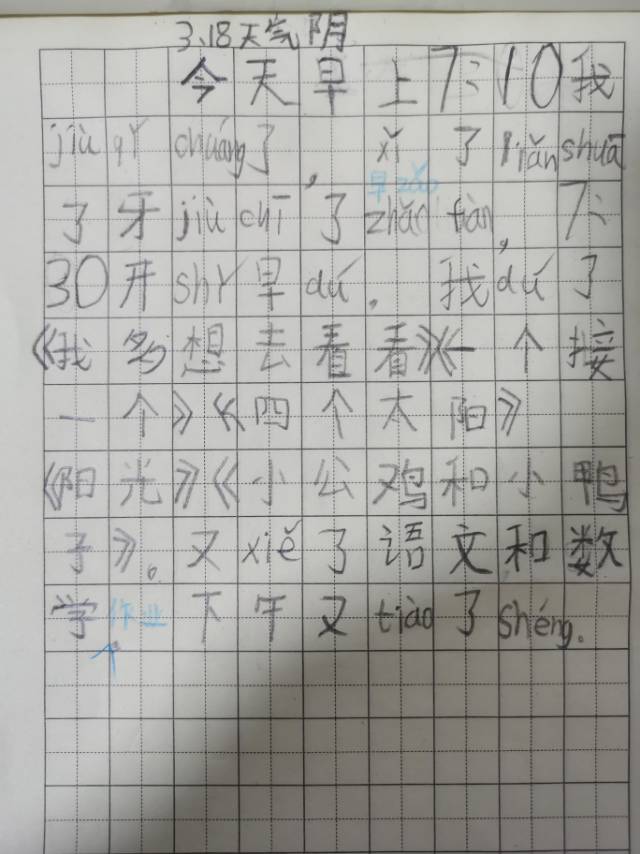 3.18天气阴
今天早上7:10我
jiù qǐ chuáng了,xǐ了liǎn shuā
早zǎo
了牙jiù chī了zhǎo tiàn,7:
30开shǐ早dú。我dú了
《我多想去看看》《一个接
一个》《四个太阳》
《阳光》《小公鸡和小鸭
子》。又xiě了语文和数
学作业下午又tiào了shéng.